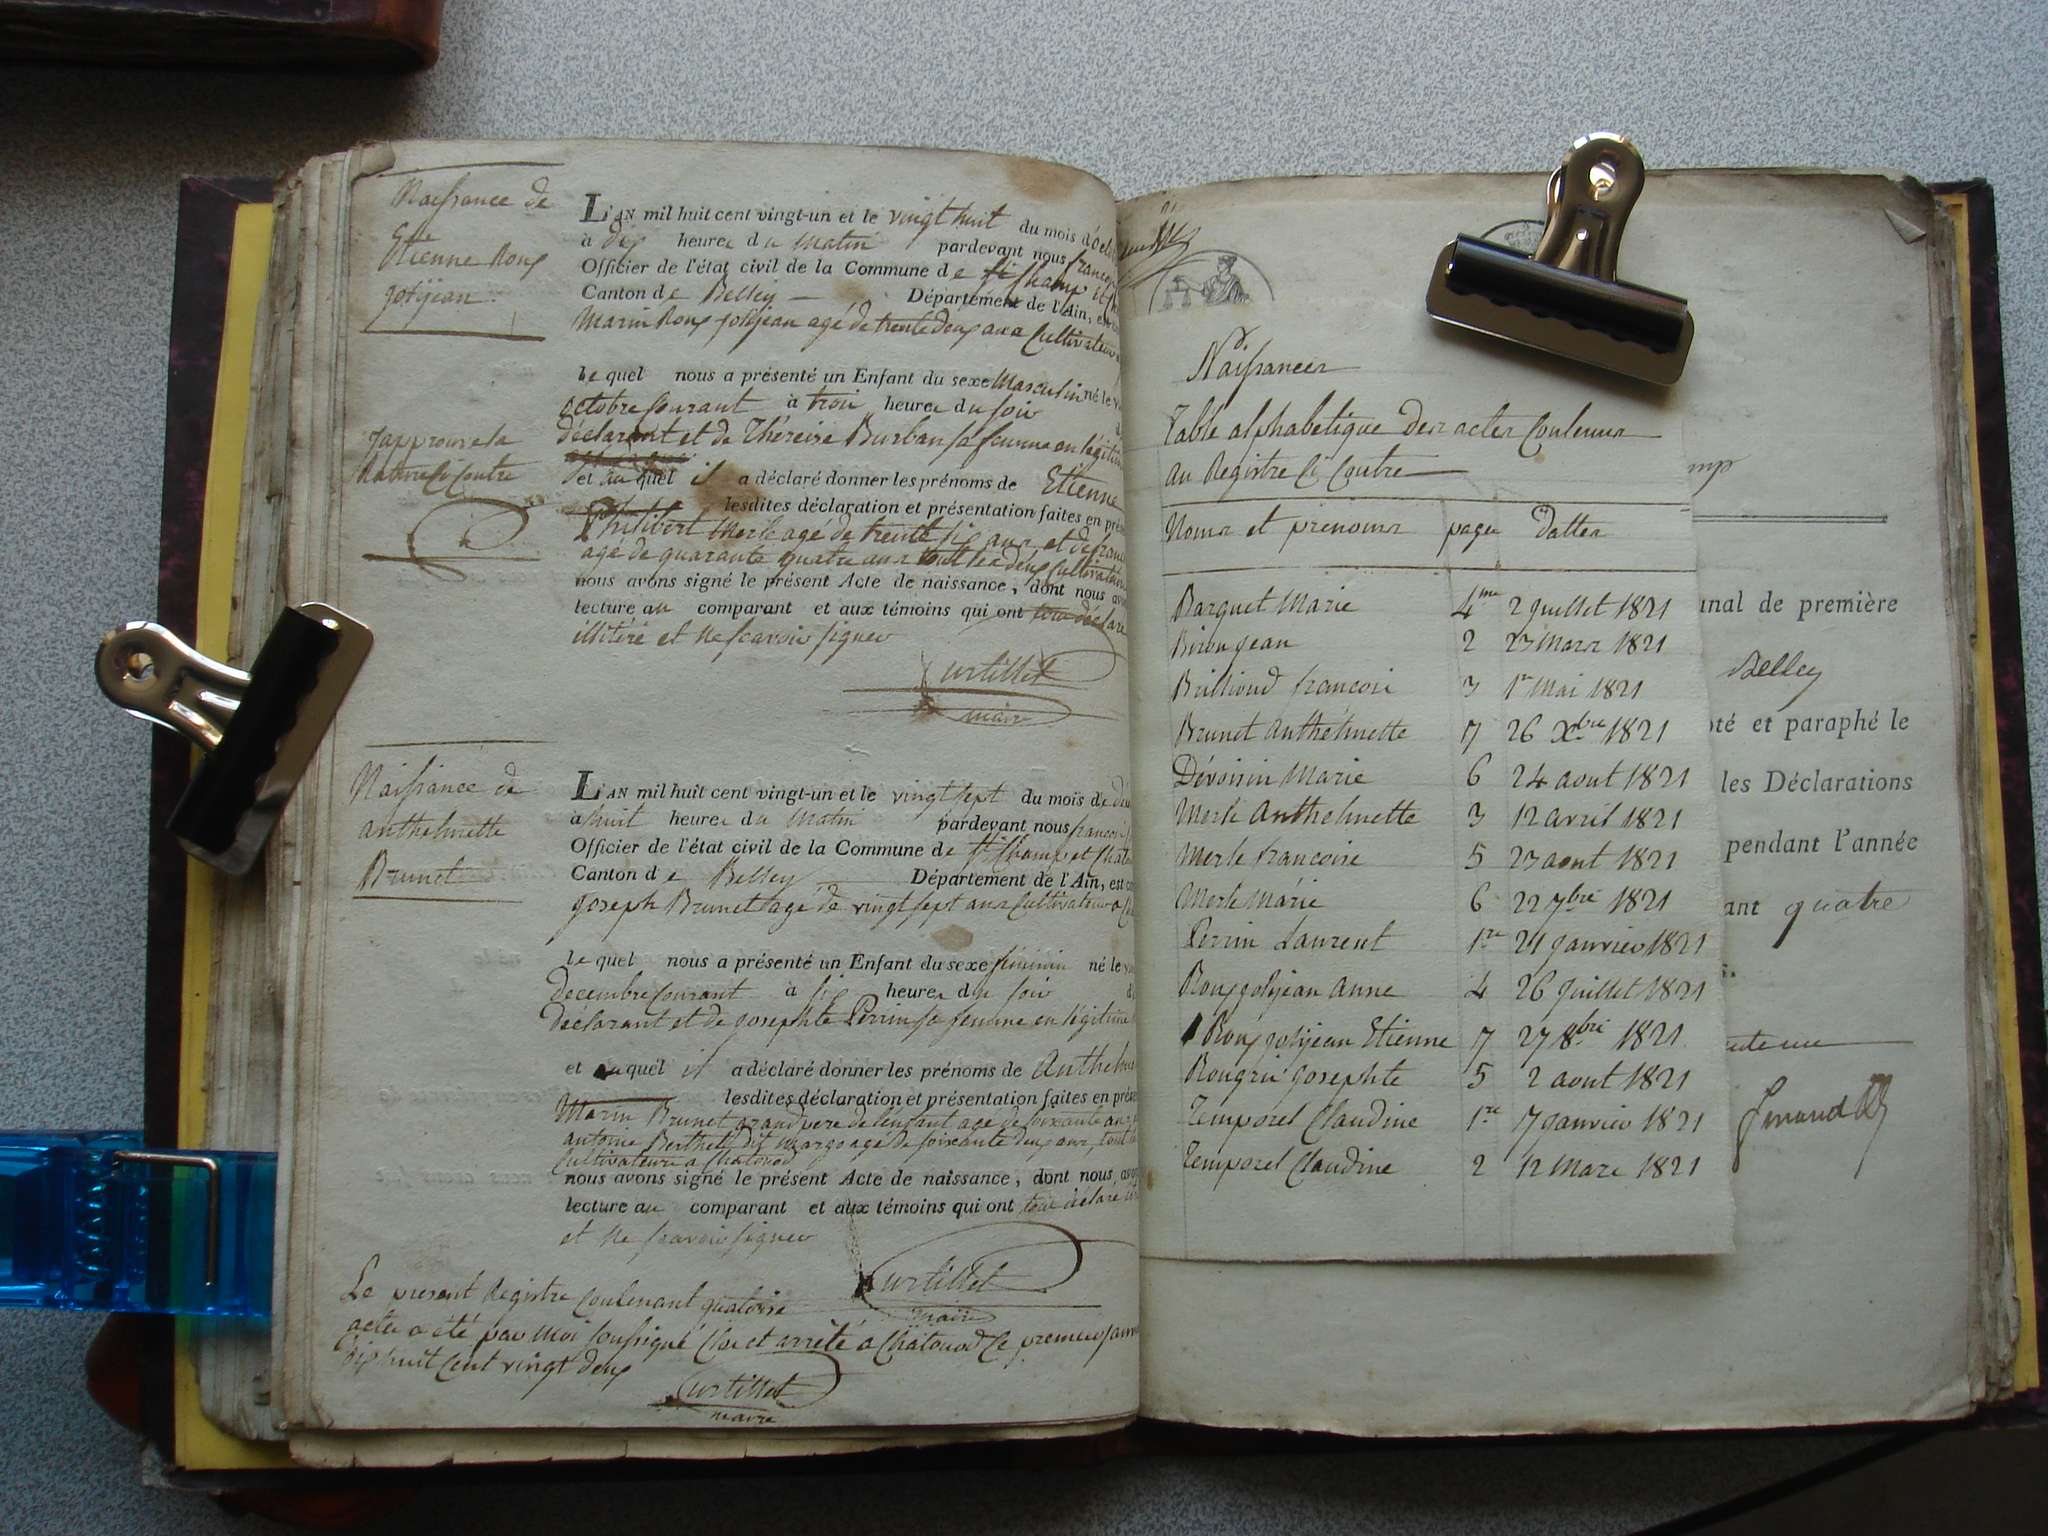 Naissance de
Etienne Roux
Jolijean
L'AN mil huit cent vingt-un et le vingt huit du mois d'Oct
à dix heures du Matin pardevant nous françois
Officier de l'état civil de la Commune de St Champ et
Canton de Belley Département de l'Ain, es
Marin Roux Jolijean agé de trente deux ans Cultivateur
lequel nous a présenté un Enfant du sexe Masculin né le v
octobre Courant à trois heures du soir
déclarant et de Théreise Burban sa femme en légiti
J'approuve la
Rature Ci Contre
et auquel il a déclaré donner les prénoms de Etienne
lesdites déclaration et présentation faites en prés
Philibert Merle agé de trente six ans et de
agé de quarante quatre ans tout les deux Cultivateurs
nous avons signé le présent Acte de naissance, dont nous avo
lecture au comparant et aux témoins qui ont tous déclaré
illitéré et ne scavoir signer
Curtillet
maire
Naissance de
anthelmette
Brunet
L'AN mil huit cent vingt-un et le vingt sept du mois de de
à huit heures du Matin pardevant nous françois
Officier de l'état civil de la Commune de St Champ et Chato
Canton de Belley Département de l'Ain, est co
Joseph Brunet agé de vingt sept ans Cultivateur a
lequel nous a présenté un Enfant du sexe féminin né le v
Decembre Courant à six heures du soir
déclarant et de Josephte Perrin sa femme en légitime
et auquel il a déclaré donner les prénoms de Anthelm
lesdites déclaration et présentation faites en prése
Marin Brunet grand pere de l'enfant agé de soixante ans
antoine Berthet dit margo agé de soixante deux ans, tout
Cultivateurs a Chatonod
nous avons signé le présent Acte de naissance, dont nous avo
lecture au comparant et aux témoins qui ont tous déclaré
et ne scavoir signer
Curtillet
maire
Le present Registre Contenant quatorse
actes a été par moi soussigné Clos et arrêté a Chatonod le premier janv
dix huit Cent vingt deux
Curtillet
maire
Naissances
Table alphabetique des actes Contenus
au Registre Ci Contre
Noms et prenoms pages Dattes
Barquet Marie 4me 2 Juillet 1821
Biron Jean 2 23 Mars 1821
Brilliond francois 3 1er Mai 1821
Brunet Anthelmette 7 26 Xbre 1821
Dévoisin Marie 6 24 aout 1821
Merle Anthelmette 3 12 avril 1821
Merle francoise 5 23 aout 1821
Merle Marie 6 22 7bre 1821
Perrin Laurent 1re 21 Janvier 1821
Roux Jolijean Anne 4 26 Juillet 1821
Roux Jolijean Etienne 7 27 8bre 1821
Rougrié Josephte 5 2 aout 1821
Temporel Claudine 1re 7 Janvier 1821
Temporel Claudine 2 12 Mars 1821
mp
unal de première
Belley
oté et paraphé le
les Déclarations
pendant l'année
ant quatre